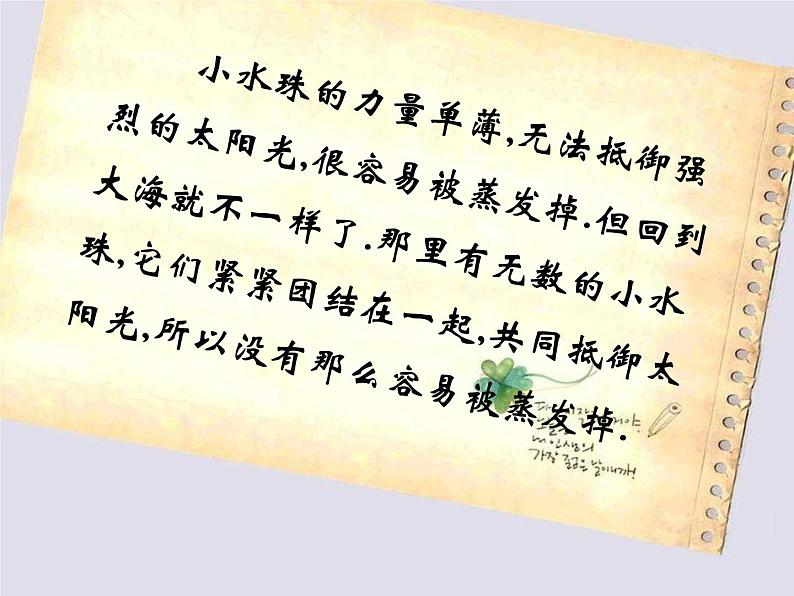 小水珠的力量单薄,无法抵御强
烈的太阳光,很容易被蒸发掉.但回到
大海就不一样了.那里有无数的小水
珠,它们紧紧团结在一起,共同抵御太
阳光,所以没有那么容易被蒸发掉.
인생의
가장 젊은 날이니까!